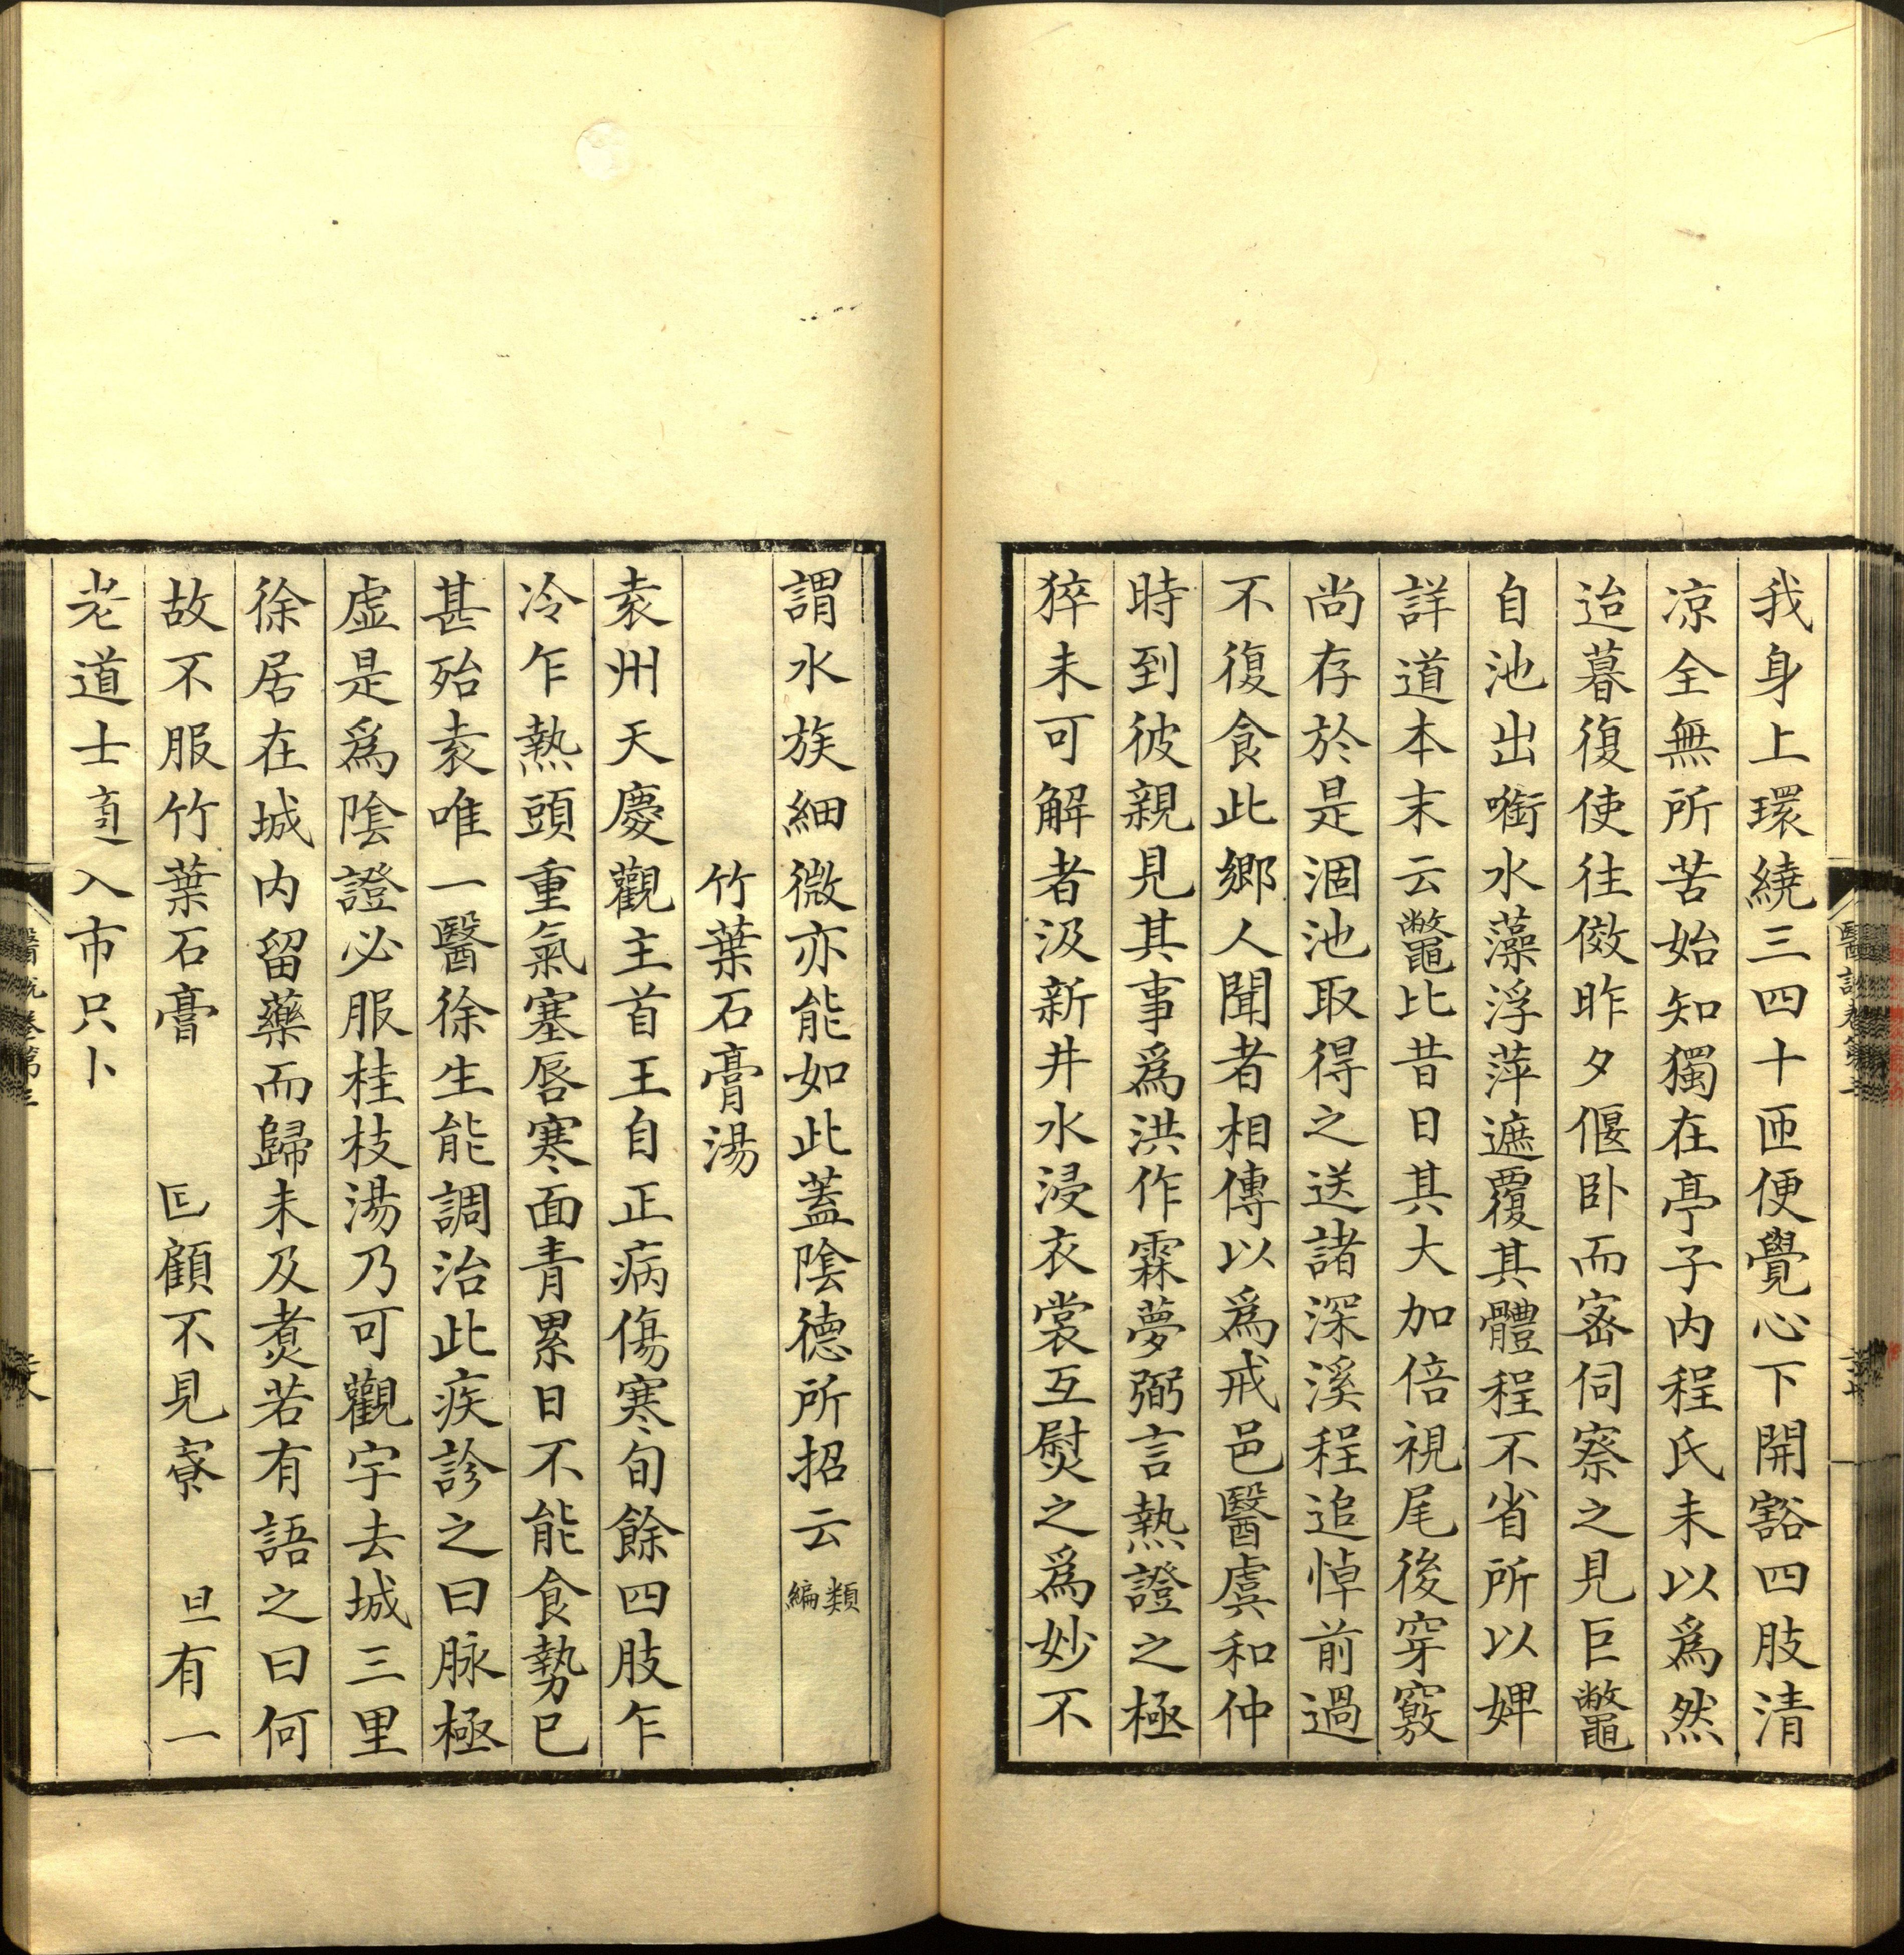 我身上環繞三四十匝便覺心下開豁四肢清
凉全無所苦始知獨在亭子内程氏未以爲然
迨暮復使往傚昨夕偃卧而宻伺察之見巨鼈
自池出㘅水藻浮萍遮覆其體程不省所以婢
詳道本末云鼈比昔日其大加倍視尾後穿竅
尚存於是涸池取得之送諸深溪程追悼前過
不復食此鄉人聞者相傳以爲戒邑醫虞和仲
時到彼親見其事爲洪作霖夢弼言熱證之極
猝未可解者汲新井水浸衣裳互熨之爲妙不
謂水族細微亦能如此蓋陰德所招云類編
竹葉石膏湯
袁州天慶觀主首王自正病傷寒旬餘四肢乍
冷乍熱頭重氣塞唇寒面青累日不能食勢已
甚殆袁唯一醫徐生能調治此疾診之曰脉極
虛是爲陰證必服桂枝湯乃可觀宇去城三里
徐居在城内留藥而歸未及煑若有語之曰何
故不服竹葉石膏 顧不見寮 旦有一
老道士 入市只
醫說卷第三